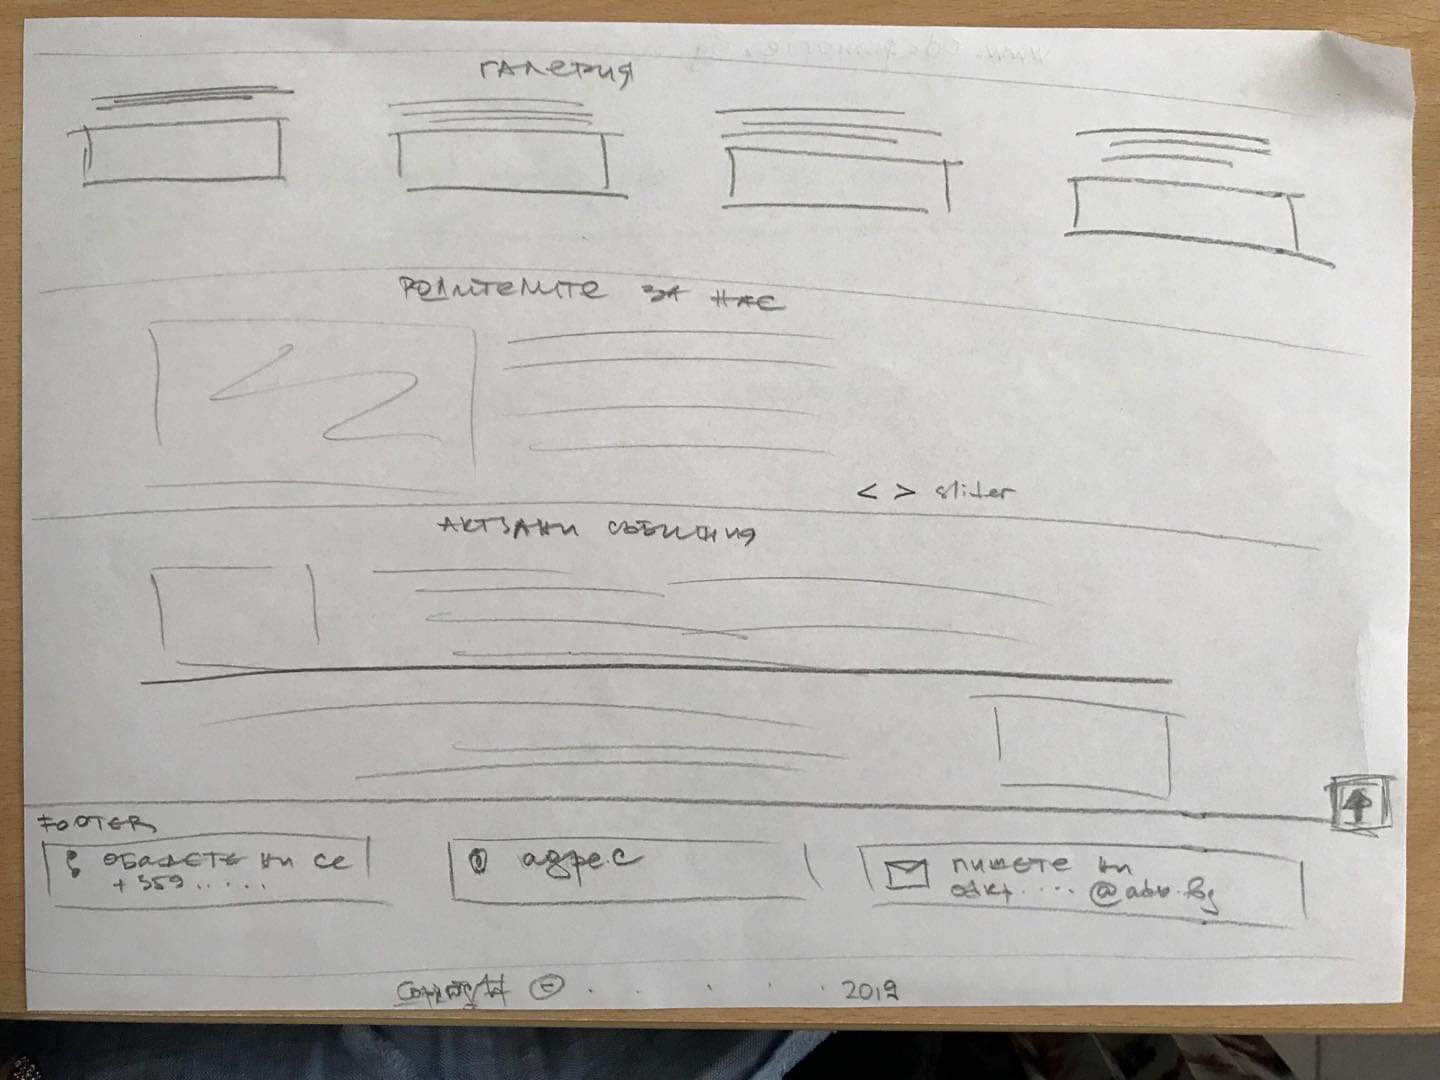 галерия
Родителите за нас
Актуални събития
< > slider
FOOTER
Обадете ни се
+359.....
адрес
Пишете ни
@abv.bg
Copyright © . . . . 2019